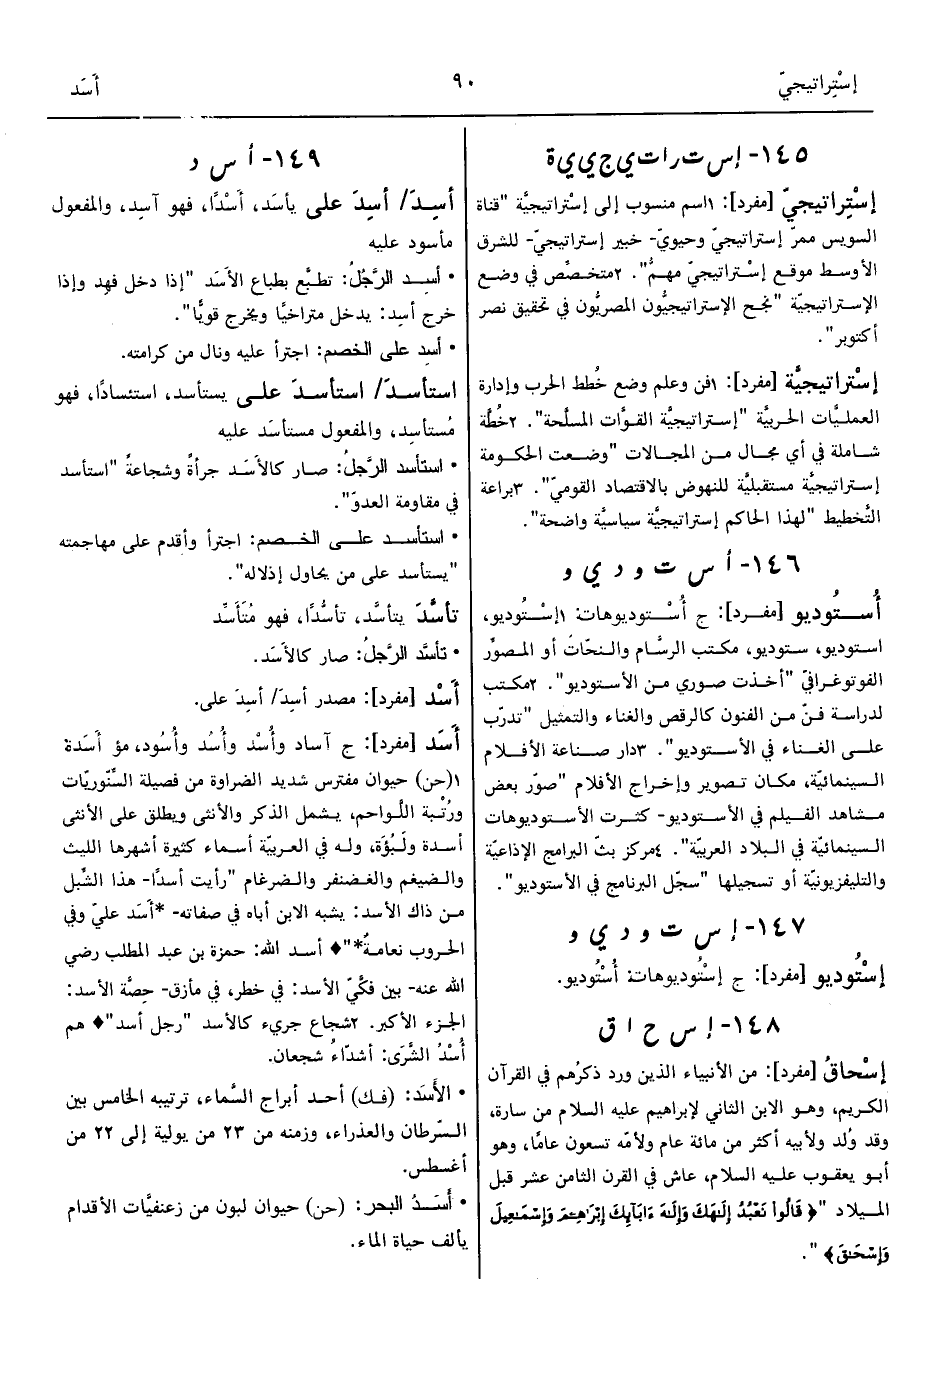 إسْتِراتيجيّ
٩٠
أسَد
١٤٥- إ س ت ر ا ت ي ج ي ي ة
إسْتِراتيجيّ [مفرد]: ١اسم منسوب إلى إسْتِراتيجيَّة "قناة
السويس ممرّ إستراتيجيّ وحيويّ- خبير إستراتيجيّ- للشرق
الأوسط موقع إسْتراتيجيّ مهمٌّ". ٢متخصِّص في وضع
الإستراتيجيّة "نجح الإستراتيجيُّون المصريُّون في تحقيق نصر
أكتوبر".
إسْتراتيجيَّة [مفرد]: ١فن وعلم وضع خُطط الحرب وإدارة
العمليَّات الحربيَّة "إستراتيجيَّة القوَّات المسلّحة". ٢خُطَّة
شاملة في أي مجال من المجالات "وضعت الحكومة
إستراتيجيَّة مستقبليَّة للنهوض بالاقتصاد القوميّ". ٣براعة
التَّخطيط "لهذا الحاكم إستراتيجيَّة سياسيَّة واضحة".
١٤٦- أ س ت و د ي و
أُسْتوديُو [مفرد]: ج أُسْتوديوهات: ١إسْتُوديو،
استوديو، ستوديو، مكتب الرسَّام والنحّات أو المصوِّر
الفوتوغرافيّ "أخذت صوري من الأستوديو". ٢مكتب
لدراسة فنّ من الفنون كالرقص والغناء والتمثيل "تدرّب
على الغناء في الأستوديو". ٣دار صناعة الأفلام
السينمائيّة، مكان تصوير وإخراج الأفلام "صوّر بعض
مشاهد الفيلم في الأستوديو- كثرت الأستوديوهات
السينمائيّة في البلاد العربيّة". ٤مركز بثّ البرامج الإذاعيّة
والتليفزيونيّة أو تسجيلها "سجّل البرنامج في الأستوديو".
١٤٧- إ س ت و د ي و
إسْتُوديُو [مفرد]: ج إسْتُوديوهات: أُسْتُوديو.
١٤٨- إ س ح ا ق
إسْحاقُ [مفرد]: من الأنبياء الذين ورد ذكرُهم في القرآن
الكريم، وهو الابن الثاني لإبراهيم عليه السلام من سارة،
وقد وُلد ولأبيه أكثر من مائة عام ولأمّه تسعون عامًا، وهو
أبو يعقوب عليه السلام، عاش في القرن الثامن عشر قبل
الميلاد "﴿ قَالُواْ نَعْبُدُ إِلَٰهَكَ وَإِلَٰهَ ءَابَآئِكَ إِبْرَٰهِـۧمَ وَإِسْمَٰعِيلَ
وَإِسْحَٰقَ ﴾ ".
١٤٩- أ س د
أسِدَ/ أسِدَ على يأسَد، أسَدًا، فهو آسِد، والمفعول
مأسود عليه
• أسِد الرَّجُلُ: تطبَّع بطباع الأسَد "إذا دخل فهِد وإذا
خرج أسِد: يدخل متراخيًا ويخرج قويًّا".
• أسِد على الخصم: اجترأ عليه ونال من كرامته.
استأسدَ/ استأسدَ على يستأسد، استئسادًا، فهو
مُستأسِد، والمفعول مستأسَد عليه
• استأسد الرَّجلُ: صار كالأسَد جرأةً وشجاعةً "استأسد
في مقاومة العدوّ".
• استأسد على الخصم: اجترأ وأقدم على مهاجمته
"يستأسد على من يحاول إذلاله".
تأسَّدَ يتأسَّد، تأسُّدًا، فهو مُتَأَسِّد
• تأسَّد الرَّجلُ: صار كالأسَد.
أسَد [مفرد]: مصدر أسِدَ/ أسِدَ على.
أسَد [مفرد]: ج آساد وأُسْد وأُسُد وأُسُود، مؤ أسَدة
١(حن) حيوان مفترس شديد الضراوة من فصيلة السِّنَّوريّات
ورُتْبة اللَّواحم، يشمل الذكر والأنثى ويطلق على الأنثى
أسدة ولَبُؤَة، وله في العربيّة أسماء كثيرة أشهرها الليث
والضيغم والغضنفر والضرغام "رأيت أسدًا- هذا الشِّبل
من ذاك الأسد: يشبه الابن أباه في صفاته- *أسَد عليّ وفي
الحروب نعامةٌ*"♦ أسد الله: حمزة بن عبد المطلب رضي
الله عنه- بين فكَّيّ الأسد: في خطر، في مأزق- حِصَّة الأسد:
الجزء الأكبر. ٢شجاع جريء كالأسد "رجل أسد"♦ هم
أُسْدُ الشَّرَى: أشدّاءُ شجعان.
• الأَسَد: (فك) أحد أبراج السَّماء، ترتيبه الخامس بين
السَّرطان والعذراء، وزمنه من ٢٣ من يولية إلى ٢٢ من
أغسطس.
• أَسَدُ البحر: (حن) حيوان لبون من زعنفيَّات الأقدام
يألف حياة الماء.